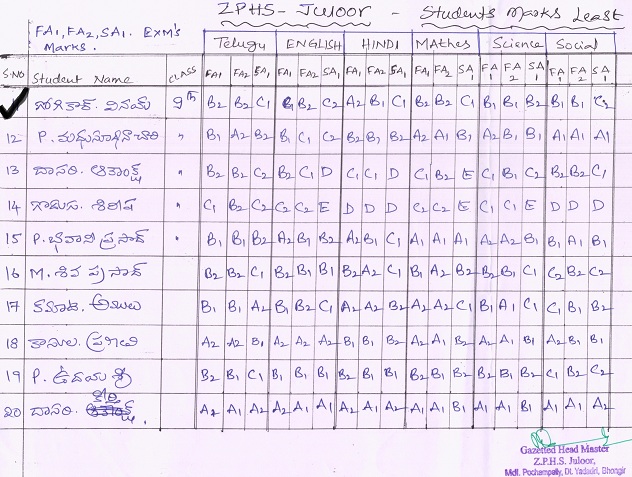 ZPHS- Juloor - Students Marks Least
FA1, FA2, SA1. EXM's
Marks.
Telugu ENGLISH HINDI MAthes Science Social
S.NO Student Name CLASS FA1 FA2 SA1 FA1 FA2 SA1 FA1 FA2 SA1 FA1 FA2 SA1 FA1 FA2 SA1 FA1 FA2 SA1
వినయ్ 9th B2 B2 C1 B2 C2 A2 B1 C1 B2 B2 C1 B1 B1 B2 B1 B1 C2
12 P. మధుసూధనాచారి " B1 A2 B2 B1 C1 C2 B2 B1 B2 A2 A1 B1 A2 B1 B1 A1 A1 A1
13 దాసరి. " B2 B2 C2 B2 C1 D C1 C1 D C1 B2 E C1 B1 C2 B2 B2 C1
14 శిరీష " C1 B2 C2 C2 C2 E D D D C2 C2 E C1 C1 E D D D
15 P. భవాని ప్రసాద్ " B1 B1 B2 A2 B1 B2 A2 B1 C1 A1 A1 A1 A2 A2 B1 B1 A1 B1
16 M. శివ ప్రసాద్ B2 B2 C1 B2 B1 B1 B2 A2 C1 B1 A2 B2 B2 B1 C1 C2 B2 C2
17 B1 B1 A2 B1 B2 C1 A2 A2 B2 A2 A2 C1 B1 A1 C1 C1 B2 B2
18 A2 A2 B1 A2 A2 A2 B1 B1 B2 A2 A1 B2 A2 A1 B1 A2 B1 B1
19 P. ఉదయ శ్రీ B2 B1 C1 B1 B1 B1 B2 B1 B1 B2 B1 B2 B2 B1 B2 C1 B2 C2
20 దాసరి. A2 A1 A2 A2 A1 A1 A2 A1 A2 A1 A1 B1 A1 A1 B2 A1 A1 A2
Gazetted Head Master
Z.P.H.S. Juloor,
Mdl. Pochampally, Dt. Yadadri, Bhongir